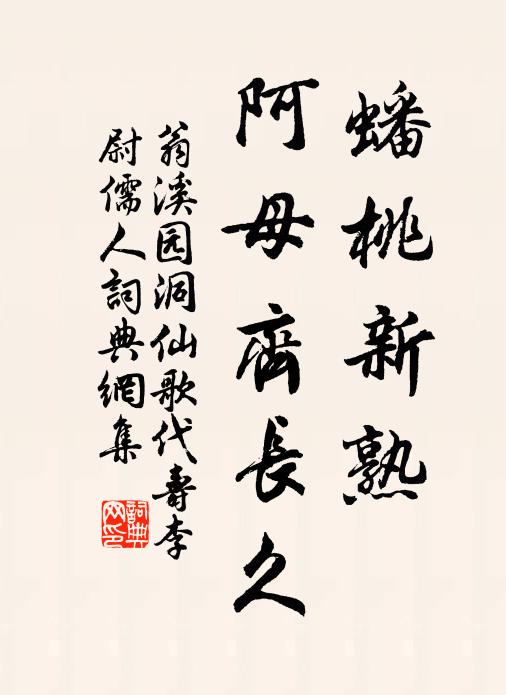 蟠桃新熟
阿母齊長久
翁溪园洞仙歌代壽李
尉儒人詞典網集
詞典网印